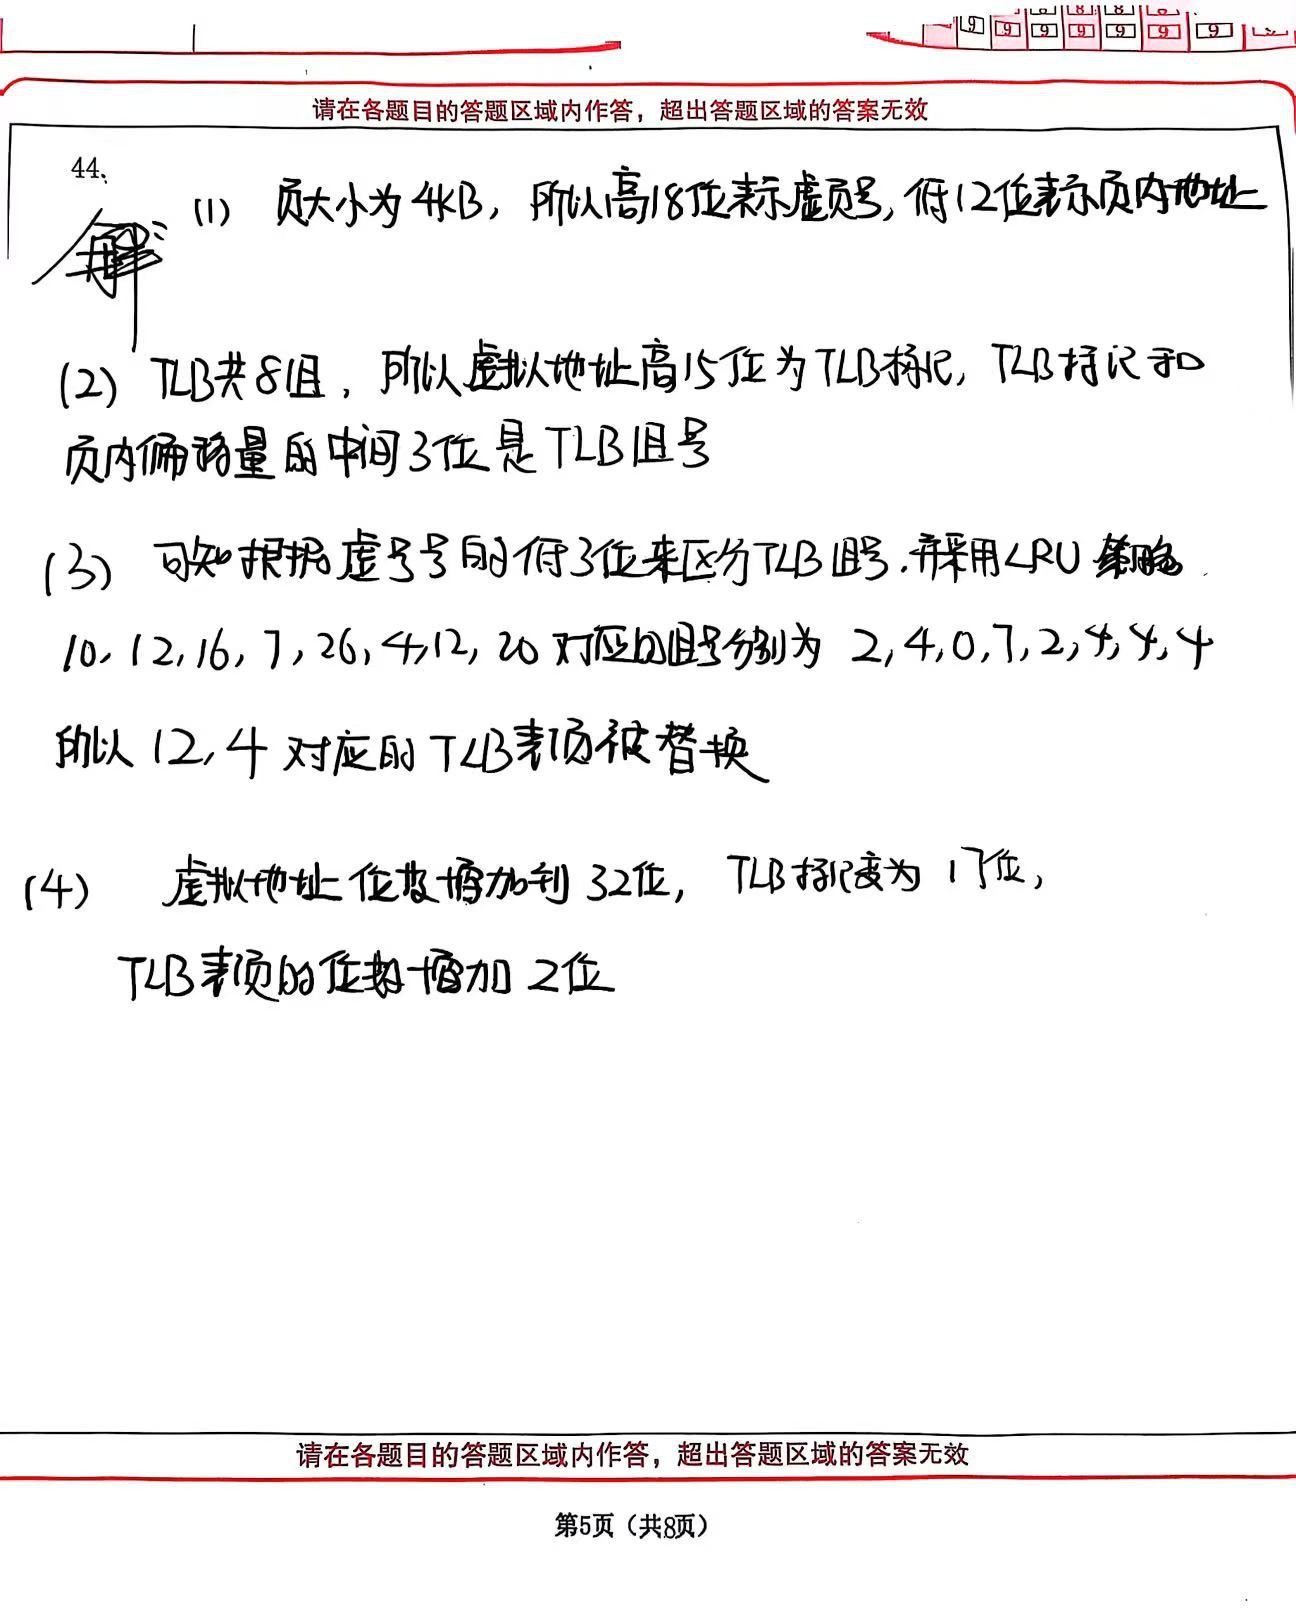 请在各题目的答题区域内作答，超出答题区域的答案无效
44、
解
(1) 页大小为4KB，所以高18位表示虚页号，低12位表示页内地址
(2) TLB共8组，所以虚拟地址高15位为TLB标记，TLB标记和
页内偏移量的中间3位是TLB组号
(3) 可知根据虚号号的低3位来区分TLB组号，并采用LRU策略
10，12，16，7，26，4，12，20对应的组号分别为 2，4，0，7，2，4，4，4
所以12，4对应的TLB表项被替换
(4) 虚拟地址位数增加到32位，TLB标记变为17位，
TLB表项的位数增加2位
请在各题目的答题区域内作答，超出答题区域的答案无效
第5页（共8页）